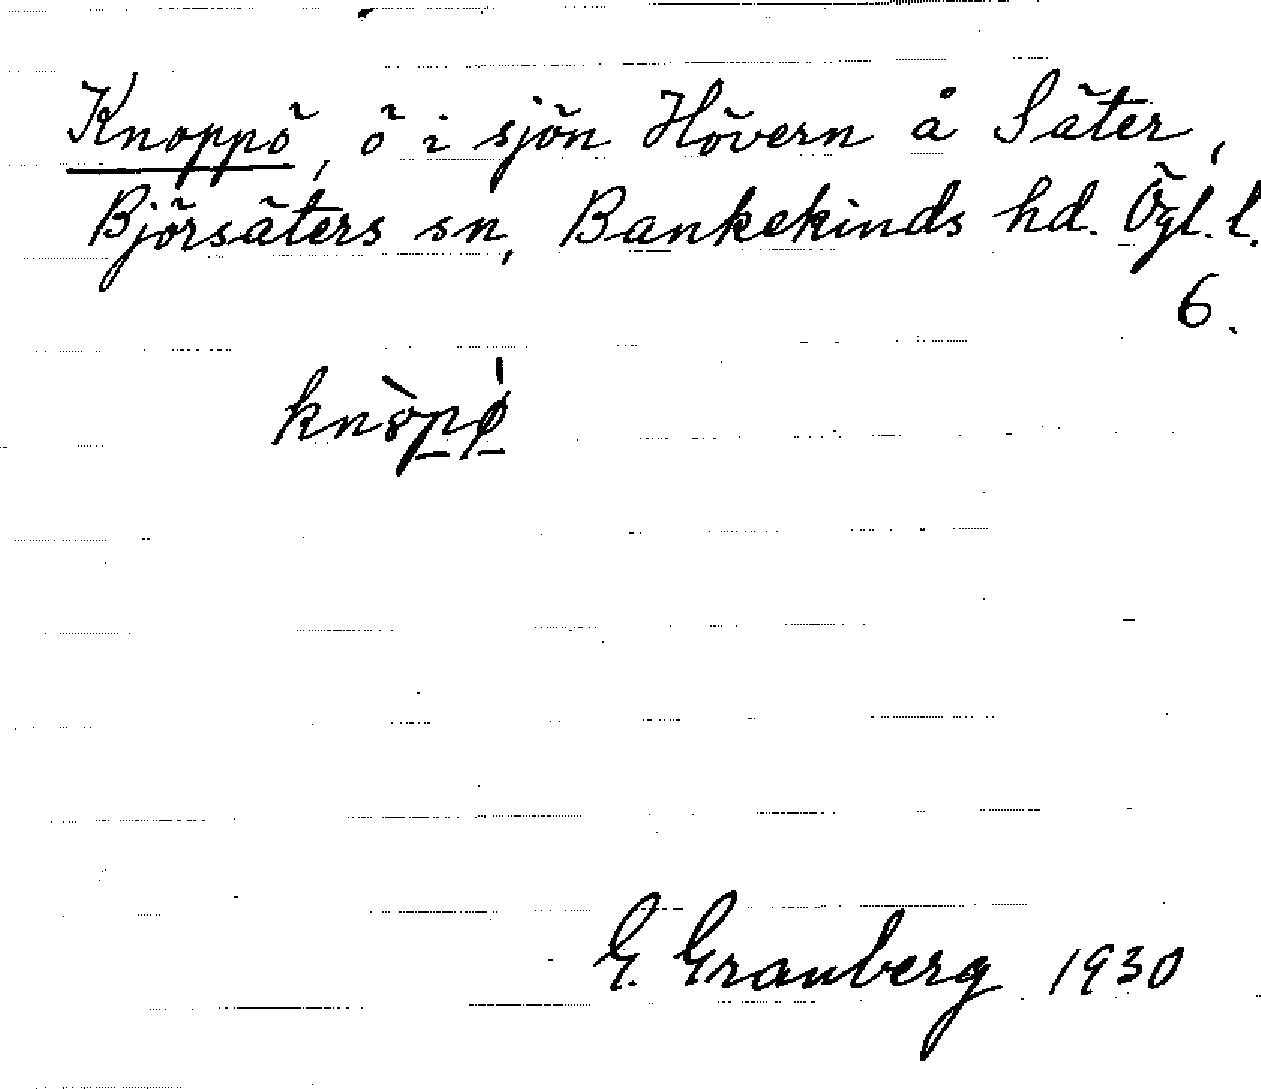 Knoppö, ö i sjön Hövern å Säter,
Björsäters sn, Bankekinds hd. Ögl. l.
6.
G. Granberg 1930